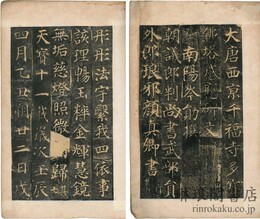 大唐西京千福寺多
佛塔感應
南陽岑勛撰
朝議郎判尚書武部員
外郎琅邪顏真卿書
彤彤法宇繫我四依事
該理暢玉粹金輝慧鏡
無垢慈燈照微 歸
天寶十一載歲次壬辰
四月乙丑朔廿二日戊
rinrokaku.co.jp